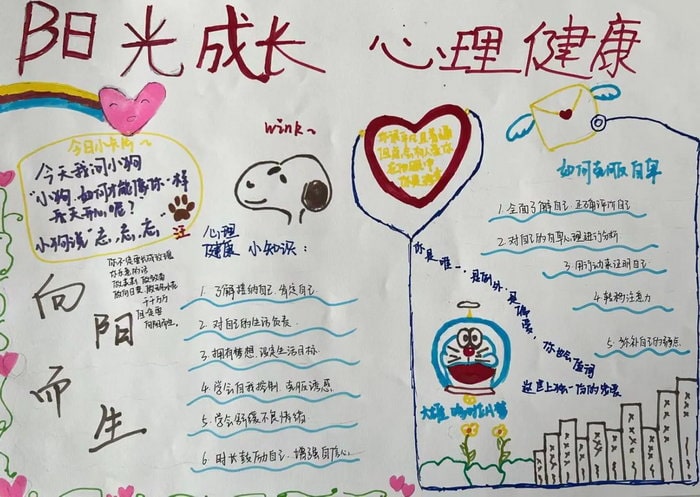 阳光成长 心理健康
今日小卡片~
今天我问小狗
"小狗,如何才能像你一样
天天开心呢?
小狗说"忘,忘,忘" 汪
wink~
心理
健康 小知识:
1.了解接纳自己,肯定自己
2.对自己的生活负责
3.拥有梦想,设定生活目标
4.学会自我控制,克服诱惑
5.学会舒缓不良情绪
6.时长鼓励自己,增强自信心
向
阳
而
生
千千万万
且你要
向阳而生。
如何克服自卑
1.全面了解自己,正确评价自己
2.对自己的自卑心理进行分析
3.用行动来证明自己
4.转移注意力
5.弥补自己的弱点
你是唯一,是例外,是偏爱,
这世上独一份的
大雄